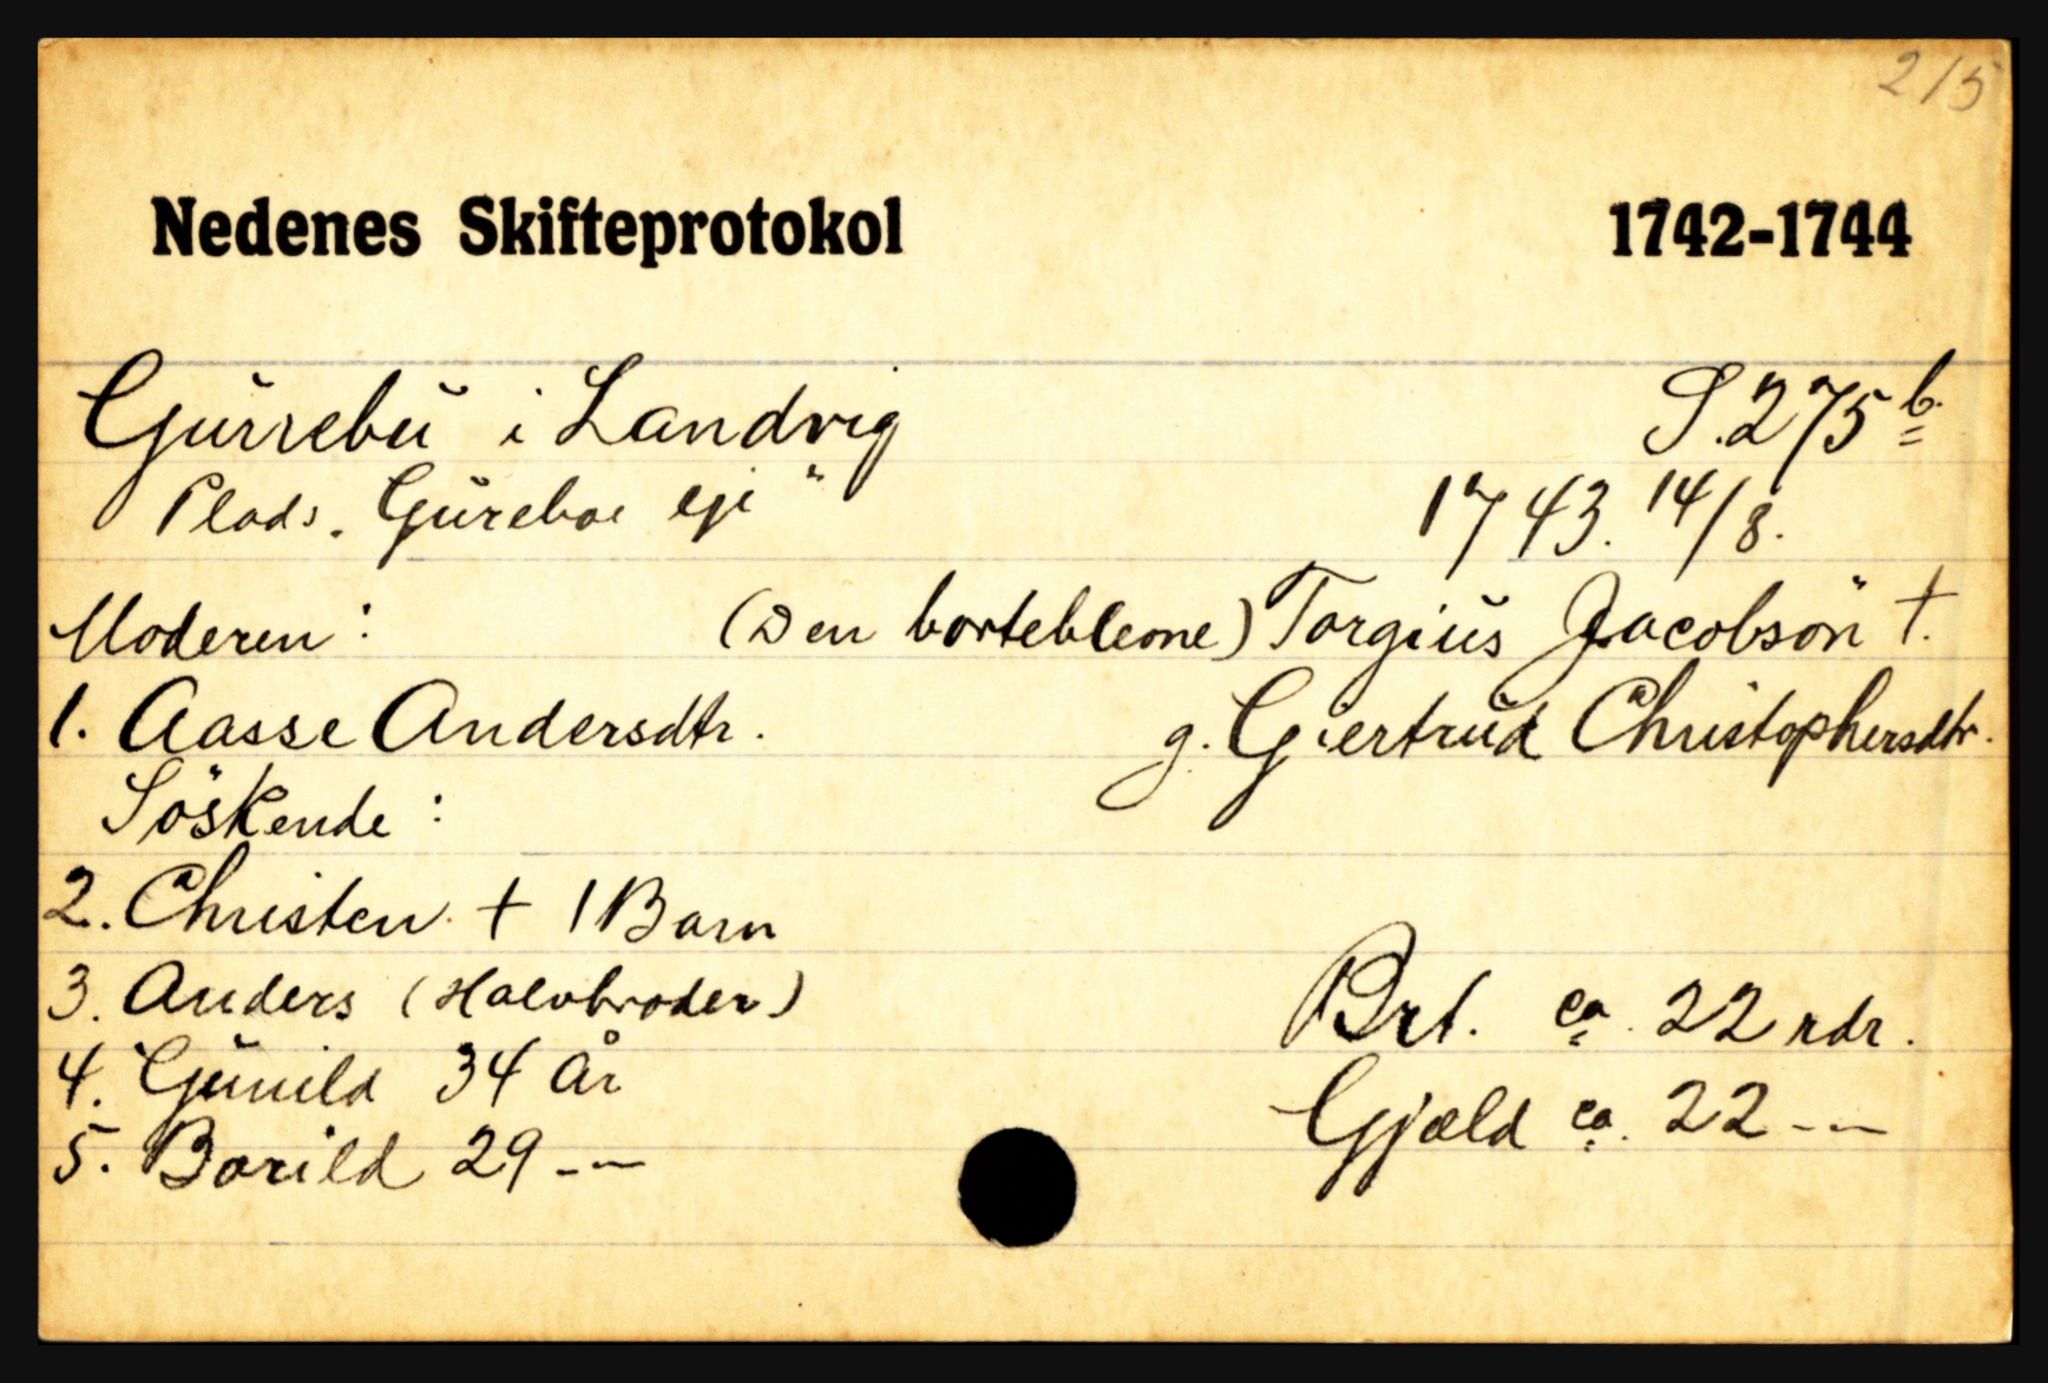 215
Nedenes Skifteprotokol 1742-1744
Gurrebu i Landvig S. 275 b.
Plads. Gureboe eje" 1743. 14/8.
Moderen: (Den bortebleone) Torgius Jacobsön †.
1. Aasse Andersdtr. g. Giertrud Christophersdtr.
Söskende:
2. Christen. † 1 Barn
3. Anders (Halvbroder)
4. Gunild 34 år
5. Borild 29 -"-
Brt. ca. 22 rdr.
Gjæld ca. 22 -"-